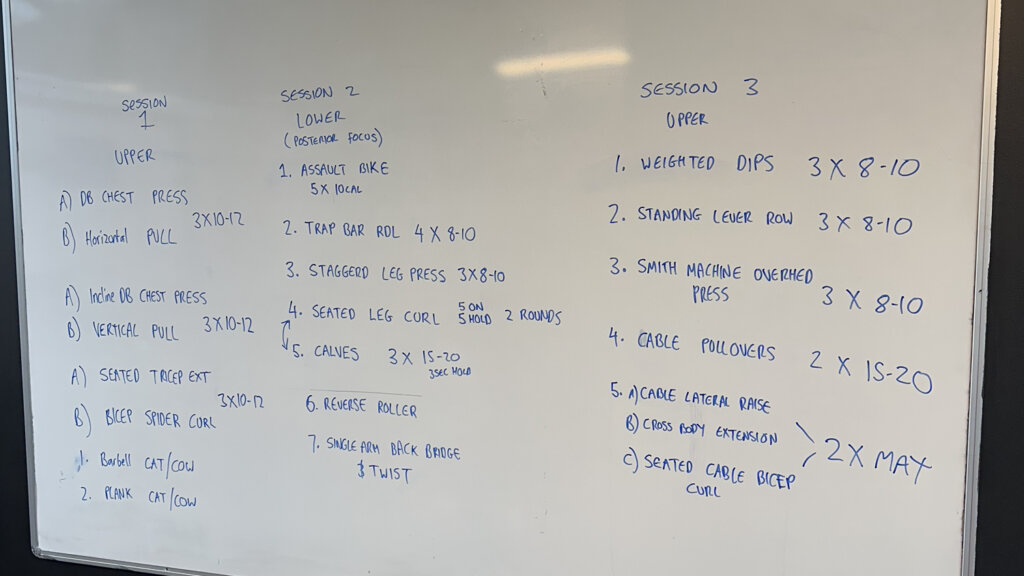 SESSION
1
UPPER
A) DB CHEST PRESS
B) Horizontal PULL 3X10-12
A) Incline DB CHEST PRESS
B) VERTICAL PULL 3X10-12
A) SEATED TRICEP EXT
B) BICEP SPIDER CURL 3X10-12
1. Barbell CAT/COW
2. PLANK CAT/COW
SESSION 2
LOWER
(POSTERIOR FOCUS)
1. ASSAULT BIKE
5 X 10CAL
2. TRAP BAR RDL 4 X 8-10
3. STAGGERD LEG PRESS 3X8-10
4. SEATED LEG CURL 5 ON 5 HOLD 2 ROUNDS
5. CALVES 3 X 15-20
3SEC HOLD
6. REVERSE ROLLER
7. SINGLE ARM BACK BRIDGE
& TWIST
SESSION 3
UPPER
1. WEIGHTED DIPS 3 X 8-10
2. STANDING LEVER ROW 3 X 8-10
3. SMITH MACHINE OVERHED
PRESS 3 X 8-10
4. CABLE POLLOVERS 2 X 15-20
5. A) CABLE LATERAL RAISE
B) CROSS BODY EXTENSION
C) SEATED CABLE BICEP
CURL
2 X MAX